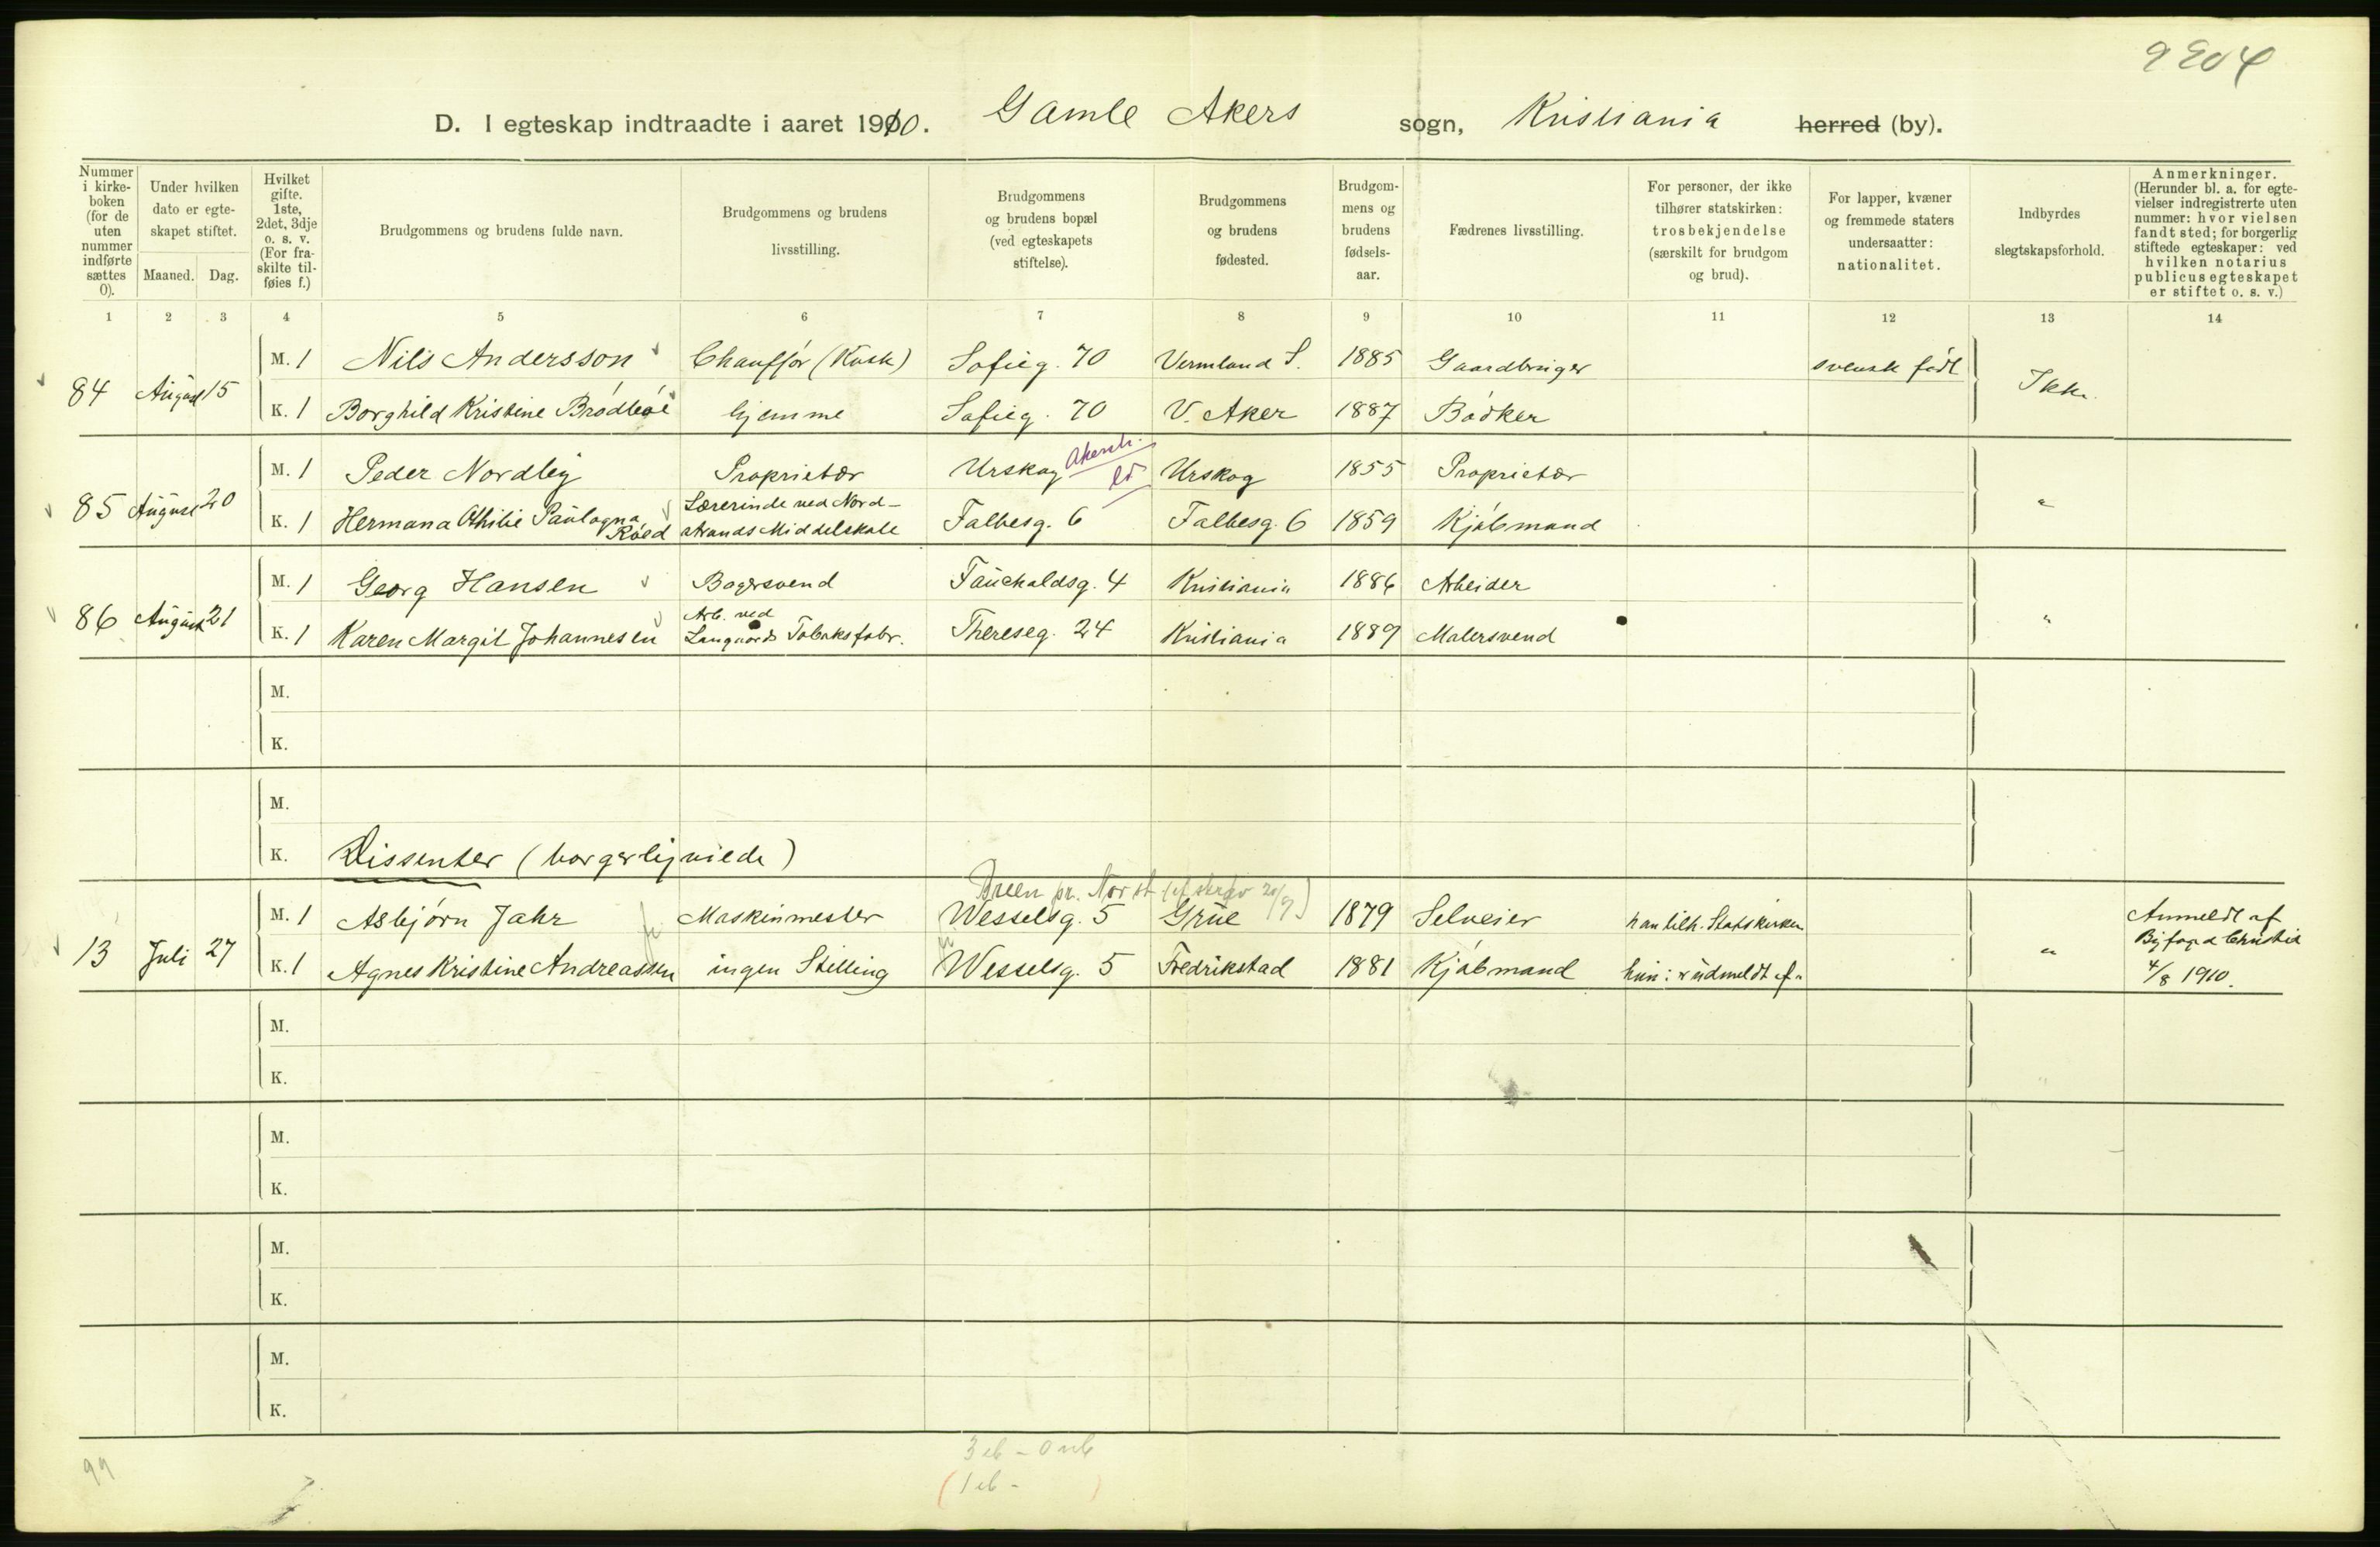 D. I egteskap indtraadte i aaret 1910. Gamle Akers sogn, Kristiania herred (by).
Nummer i kirke-boken (for de uten nummer indførte sættes 0).
Under hvilken dato er egte-skapet stiftet.
Maaned. Dag.
Hvilket gifte. 1ste, 2det, 3dje o. s. v. (For fra-skilte til-føies f.)
Brudgommens og brudens fulde navn.
Brudgommens og brudens livsstilling.
Brudgommens og brudens bopæl (ved egteskapets stiftelse).
Brudgommens og brudens fødested.
Brudgom-mens og brudens fødsels-aar.
Fædrenes livsstilling.
For personer, der ikke tilhører statskirken: trosbekjendelse (særskilt for brudgom og brud).
For lapper, kvæner og fremmede staters undersaatter: nationalitet.
Indbyrdes slegtskapsforhold.
Anmerkninger. (Herunder bl. a. for egte-vielser indregistrerte uten nummer: hvor vielsen fandt sted; for borgerlig stiftede egteskaper: ved hvilken notarius publicus egteskapet er stiftet o. s. v.)
1 2 3 4 5 6 7 8 9 10 11 12 13 14
84 August 15
M. 1 Nils Andersson Chauffør (Kusk) Sofieg. 70 Vermland S. 1885 Gaardbruger svensk født
K. 1 Borghild Kristine hjemme Sofieg. 70 V. Aker 1887 Bødker
Ikke
85 August 20
M. 1 Peder Nordby Proprietær Urskog Akersh. Urskog 1855 Proprietær
K. 1 Hermana Othilie Røed Lærerinde ved Nord-strands Middelskole Falbesg. 6 Falbesg. 6 1859 Kjøbmand
"
86 August 21
M. 1 Georg Hansen Bagersvend Fauchaldsg. 4 Kristiania 1886 Arbeider
K. 1 Karen Margit Johannesen Arb. ved Langaards Tobaksfabr. Thereseg. 24 Kristiania 1889 Malersvend
"
M.
K.
M.
K. Dissenter (borgerlig viede)
13 Juli 27
M. 1 Asbjørn Jahr Maskinmester Wesselsg. 5 Grue 1879 Selveier han tilh. Statskirken
K. 1 Agnes Kristine Andreassen ingen Stilling Wesselsg. 5 Fredrikstad 1881 Kjøbmand hun: udmeldt af "
"
Anmeldt af
Byfoged Christia
4/8 1910.
M.
K.
M.
K.
M.
K.
M.
K.
99
3 eb - 0 ub
(1 eb - )